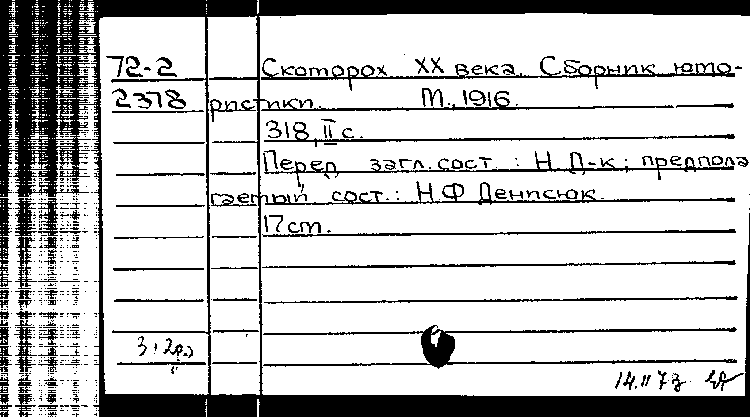 72-2 Скоморох XX века. Сборник юмо-
2378 ристики. М., 1916.
318, II с.
Перед загл. сост.: Н. Д-к; предпола
гаемый сост.: Н.Ф Денисюк.
17 см.
14.II 73